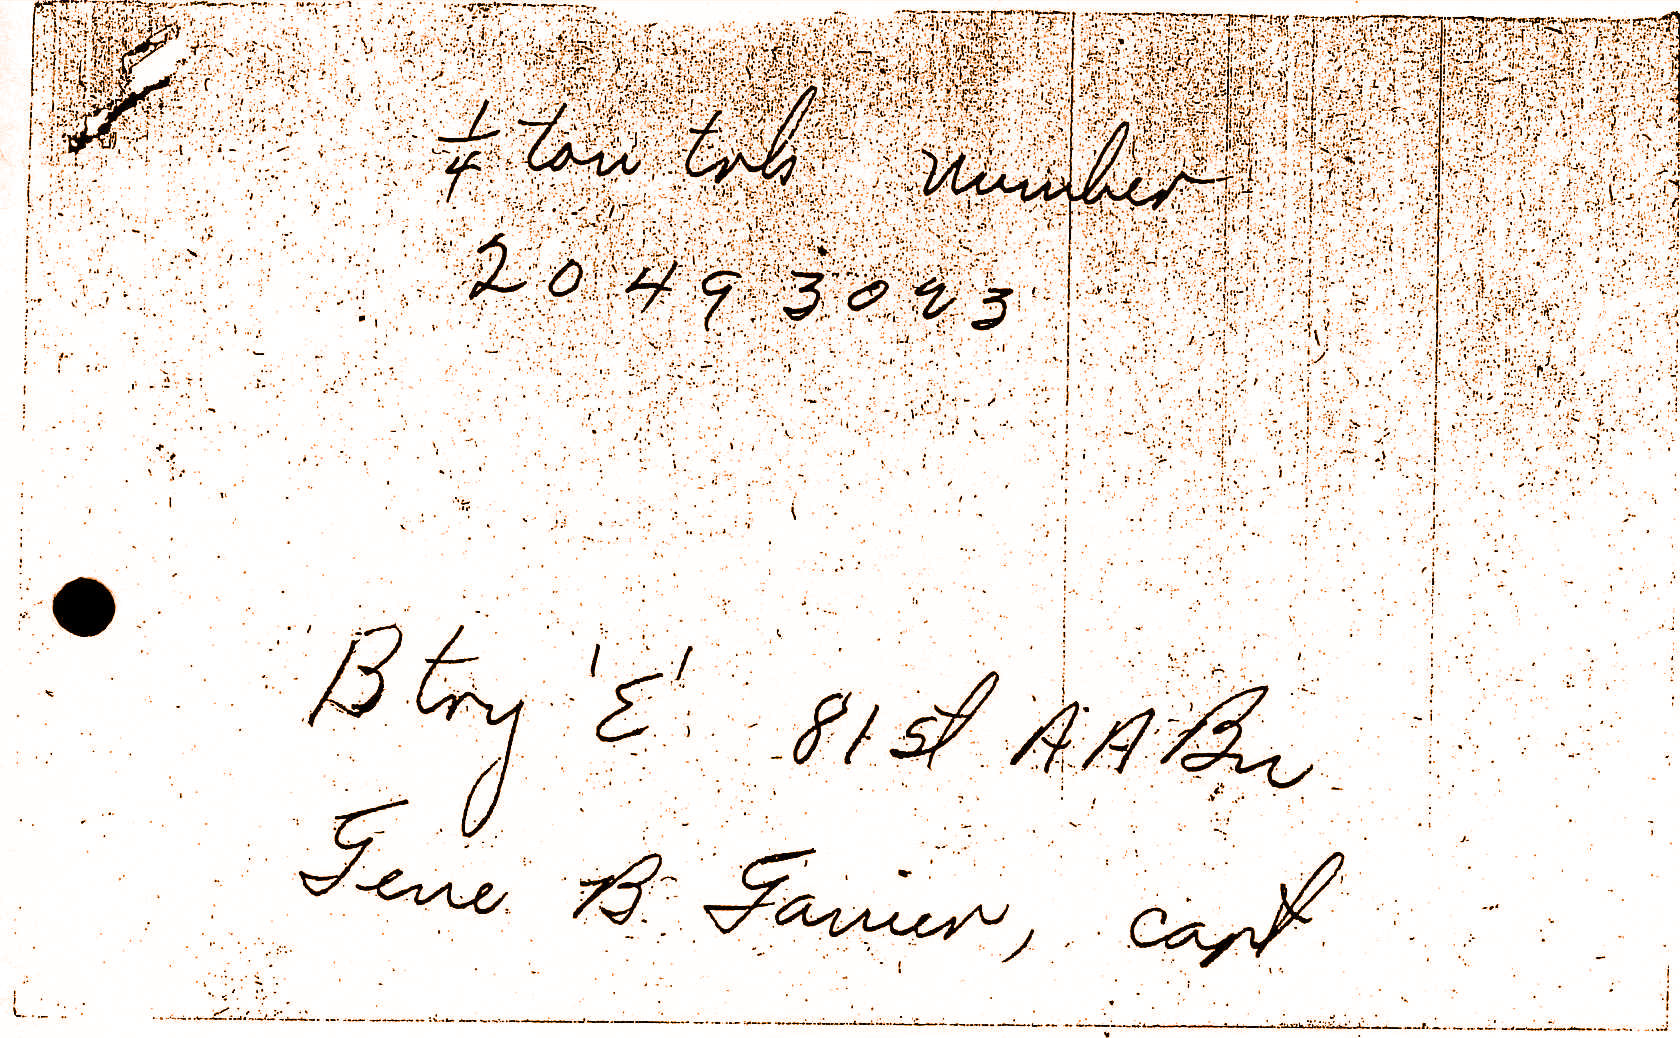 1/4 ton trk Number
20493093
Btry 'E' 81st AA Bn
Gene B , Capt